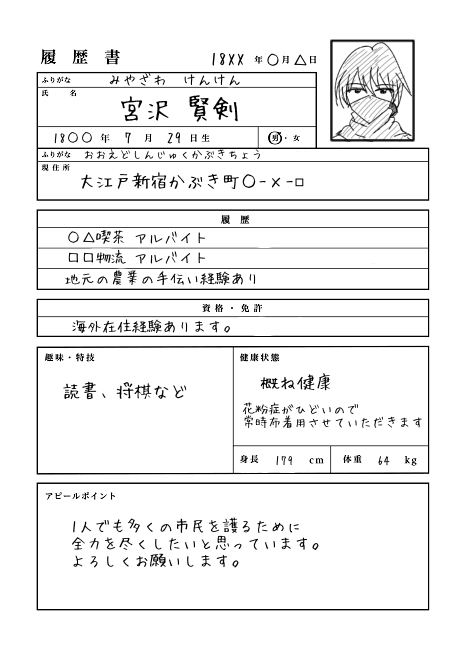 履歴書
18XX 年 〇 月 △ 日
ふりがな みやざわ けんけん
氏名 宮沢 賢剣
1800 年 7 月 29 日生 男・女
ふりがな おおえどしんじゅくかぶきちょう
現住所 大江戸新宿かぶき町〇-×-□
履歴
〇△喫茶 アルバイト
□□物流 アルバイト
地元の農業の手伝い経験あり
資格・免許
海外在住経験あります。
趣味・特技
読書、将棋など
健康状態
概ね健康
花粉症がひどいので
常時布着用させていただきます
身長 179 cm 体重 64 kg
アピールポイント
1人でも多くの市民を護るために
全力を尽くしたいと思っています。
よろしくお願いします。